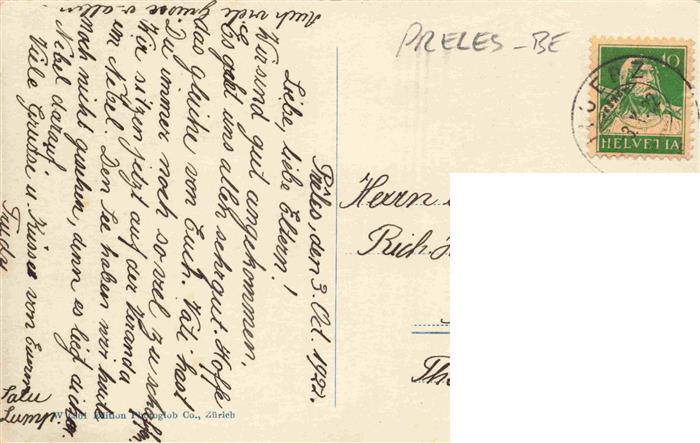 PRELES - BE
10
HELVETIA
Prêles, den 3. Oct. 1922.
Liebe, liebe Eltern!
Wir sind gut angekommen.
Es geht uns allen sehr gut. Hoffe
das gleiche von Euch. Vati hast
Du immer noch so viel zu
Wir sitzen jetzt auf der Veranda
im Nebel. Den See haben wir heute
noch nicht gesehen, denn es lieg dichter
Nebel darauf.
Viele Grüsse u. Küsse von Eurem
Trudy
Auch viele Grüsse v.
Salu
Herrn
Rich.
Edition Photoglob Co., Zürich